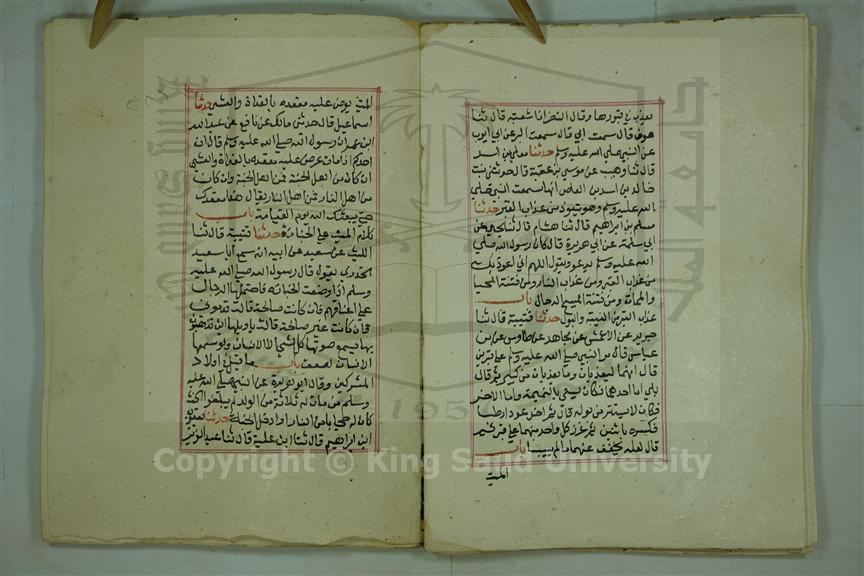 تعذب في قبورها وقال النضر انا شعبة قال ثنا
عون قال سمعت ابي قال سمعت البراعن ابي ايوب
عن النبي صلي الله عليه وسلم حدثنا معلي بن اسد
قال ثنا وهيب عن موسي بن عقبة قال حدثتني بنت
خالد بن سعيد بن العاص انها سمعت النبي صلي
الله عليه وسلم وهو يتعوذ من عذاب القبر حدثنا
مسلم بن ابراهيم قال ثنا هشام قال ثنا يحيي عن
ابي سلمة عن ابي هريرة قال كان رسول الله صلي
الله عليه وسلم يدعو ويقول اللهم اني اعوذ بك
من عذاب القبر ومن عذاب النار ومن فتنة المحيا
والممات ومن فتنة المسيح الدجال باب
عذاب القبر من الغيبة والبول حدثنا قتيبة قال ثنا
جرير عن الاعمش عن مجاهد عن طاوس عن ابن
عباس قال مر النبي صلي الله عليه وسلم علي قبرين
قال انهما ليعذبان وما يعذبان من كبير ثم قال
بلي اما احدهما فكان يسعي بالنميمة واما الاخر
فكان لا يستتر من بوله قال ثم اخذ عودا رطبا
فكسره باثنين ثم غرز كل واحد منهما علي قبر ثم
قال لعله يخفف عنهما مالم ييبسا باب
الميت
الميت يعرض عليه مقعده بالغداة والعشي حدثنا
اسماعيل قال حدثني مالك عن نافع عن عبد الله
ابن عمر ان رسول الله صلي الله عليه وسلم قال ان
احدكم اذا مات عرض عليه مقعده بالغداة والعشي
ان كان من اهل الجنة فمن اهل الجنة وان كان
من اهل النار فمن اهل النار يقال هذا مقعدك
حتي يبعثك الله يوم القيامة باب
كلام الميت علي الجنازة حدثنا قتيبة قال ثنا
الليث عن سعيد عن ابيه انه سمع ابا سعيد
الخدري يقول قال رسول الله صلي الله عليه
وسلم اذا وضعت الجنازة فاحتملها الرجال
علي اعناقهم فان كانت صالحة قالت قدموني
وان كانت غير صالحة قالت ياويلها اين تذهبون
بها يسمع صوتها كل شي الا الانسان ولو سمعها
الانسان لصعق باب ما قيل في اولاد
المشركين وقال ابو هريرة عن النبي صلي الله عليه
وسلم من مات له ثلاثة من الولد لم يبلغوا الحنث
كان له حجابا من النار او ادخل الجنة حدثنا يعقوب
ابن ابراهيم قال ثنا ابن علية قال ثنا عبد العزيز
Copyright © King Saud University